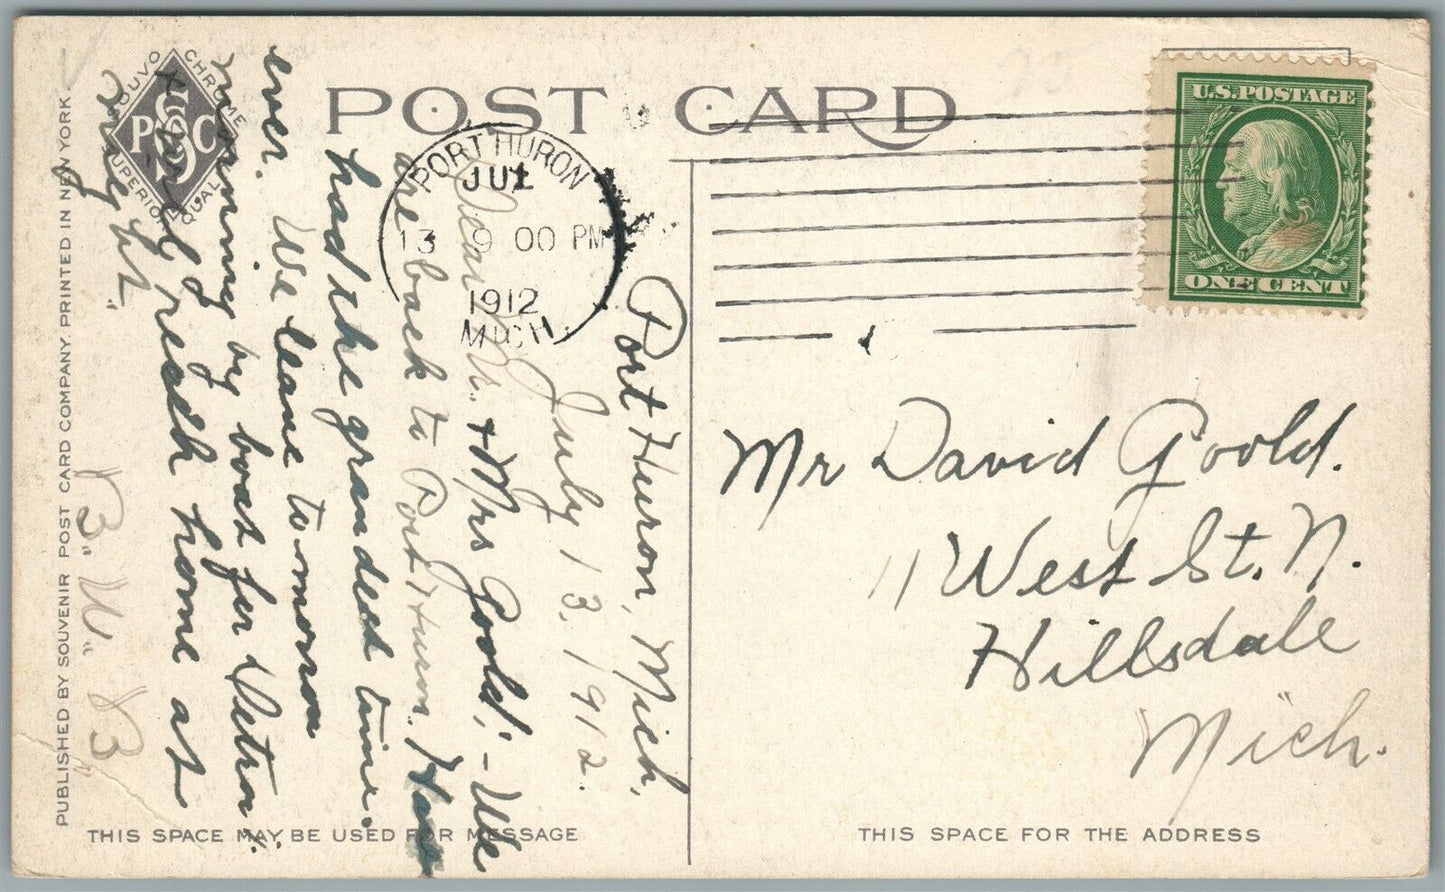 POST CARD
LOUVO CHROME
PSC
SUPERIOR QUALITY
PUBLISHED BY SOUVENIR POST CARD COMPANY. PRINTED IN NEW YORK.
PORT HURON
JUL
13 9 00 PM
1912
MICH.
U.S. POSTAGE
ONE CENT
Port Huron, Mich,
July 13, 1912.
Dear Mr. + Mrs Goold, - We
are back to Port Huron. Have
had the grandest time
ever. We leave tomorrow
morning by boat for Detroit
+ will reach home at
night.
B. W. B.
Mr David Goold.
11 West St. N.
Hillsdale
Mich.
THIS SPACE MAY BE USED FOR MESSAGE
THIS SPACE FOR THE ADDRESS